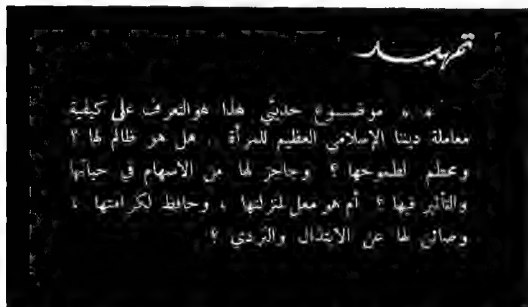 تمهيد
* * موضوع حديثي هذا هو التعرف على كيفية
معاملة ديننا الإسلامي العظيم للمرأة . هل هو ظالم لها ؟
ومحطم لطموحها ؟ وحاجز لها من الاسهام في حياتها
والتأثير فيها ؟ أم هو معل لمنزلتها ، وحافظ لكرامتها ،
وصائن لها عن الابتذال والتردي ؟